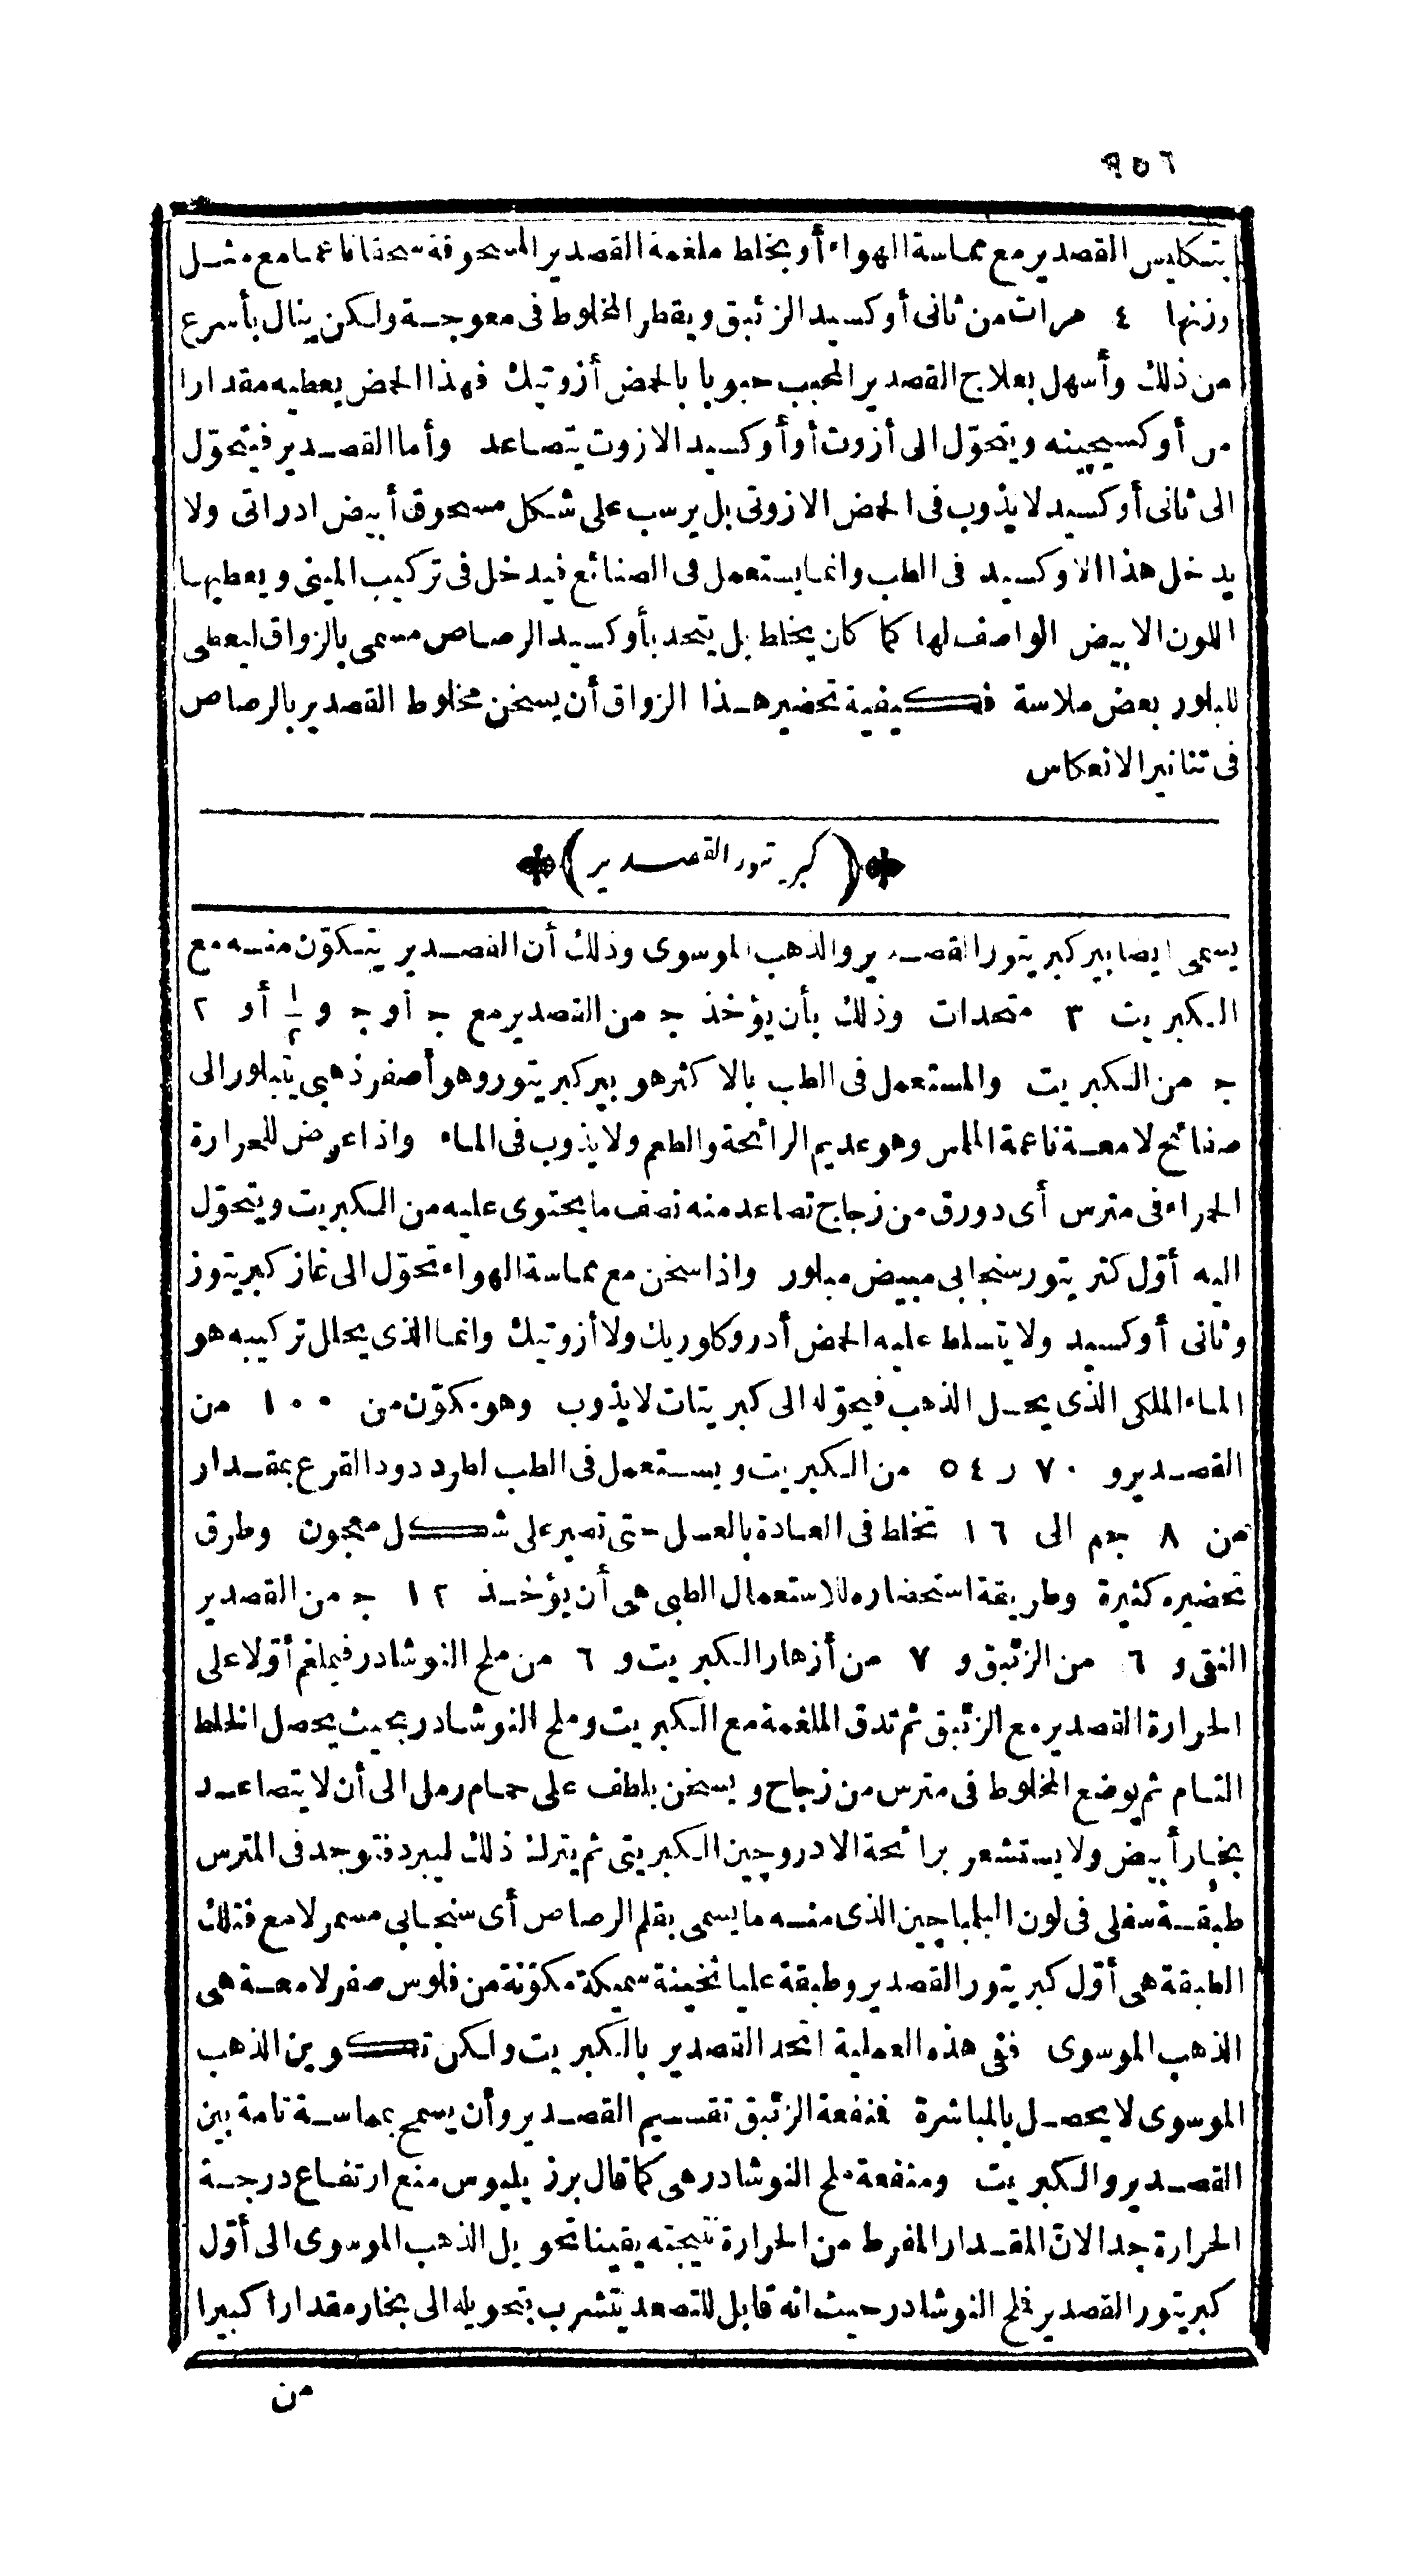 ٩٥٦
بتكليس القصدير مع مماسة الهواء أو بخلط ملغمة القصدير المسحوقة سحقا ناعما مع مثل
وزنها ٤ مرات من ثانى أوكسيد الزئبق ويقطر المخلوط فى معوجة ولكن ينال بأسرع
من ذلك وأسهل بعلاج القصدير المحبب حبوبا بالحمض أزوتيك فهذا الحمض يعطيه مقدارا
من أوكسيجينه ويتحوّل الى أزوت أو أوكسيد الازوت يتصاعد وأما القصدير فيتحوّل
الى ثانى أوكسيد لا يذوب فى الحمض الازوتى بل يرسب على شكل مسحوق أبيض ادراتى ولا
يدخل هذا الاوكسيد فى الطب وانما يستعمل فى الصنائع فيدخل فى تركيب المينى ويعطيها
اللون الابيض الواصف لها كما كان يخلط بل يتحد بأوكسيد الرصاص مسمى بالزواق ليعطى
للبلور بعض ملاسة فكيفية تحضير هذا الزواق أن يسخن مخلوط القصدير بالرصاص
فى تنانير الانعكاس
(كبريتور القصدير)
يسمى ايضا بيركبريتور القصدير والذهب الموسوى وذلك أن القصدير يتكوّن منه مع
الكبريت ٣ متحدات وذلك بأن يؤخذ ج من القصدير مع ج أو ج و ١/٢ أو ٢
ج من الكبريت والمستعمل فى الطب بالاكثر هو بيركبريتور وهو أصفر ذهبى يتبلور الى
صفائح لامعة ناعمة الملمس وهو عديم الرائحة والطعم ولا يذوب فى الماء واذا عرض للحرارة
الحمراء فى مترس أى دورق من زجاج تصاعد منه نصف ما يحتوى عليه من الكبريت ويتحوّل
اليه أوّل كبريتور سنجابى مبيض مبلور واذا سخن مع مماسة الهواء تحوّل الى غاز كبريتوز
وثانى أوكسيد ولا يتسلط عليه الحمض أدروكلوريك ولا أزوتيك وانما الذى يحلل تركيبه هو
الماء الملكى الذى يحل الذهب فيحوّله الى كبريتات لا يذوب وهو مكوّن من ١٠٠ من
القصدير و ٧٠ ر ٥٤ من الكبريت ويستعمل فى الطب لطرد دود القرع بمقدار
من ٨ جم الى ١٦ تخلط فى العادة بالعسل حتى تصير على شكل معجون وطرق
تحضيره كثيرة وطريقة استحضاره للاستعمال الطبى هى أن يؤخذ ١٢ ج من القصدير
النقى و ٦ من الزئبق و ٧ من أزهار الكبريت و ٦ من ملح النوشادر فيملغم أوّلا على
الحرارة القصدير مع الزئبق ثم تدق الملغمة مع الكبريت وملح النوشادر بحيث يحصل الخلط
التام ثم يوضع المخلوط فى مترس من زجاج ويسخن بلطف على حمام رملى الى أن لا يتصاعد
بخار أبيض ولا يستشعر برائحة الادروجين الكبريتى ثم يترك ذلك ليبرد فتوجد فى المترس
طبقة سفلى فى لون البلمباجين الذى منه ما يسمى بقلم الرصاص أى سنجابى مسمر لامع فتلك
الطبقة هى أوّل كبريتور القصدير وطبقة عليا ثخينة سميكة مكوّنة من فلوس صفر لامعة هى
الذهب الموسوى ففى هذه العملية اتحد القصدير بالكبريت ولكن تكوين الذهب
الموسوى لا يحصل بالمباشرة فنفعة الزئبق تقسيم القصدير وأن يسمح بمماسة تامة بين
القصدير والكبريت ومنفعة ملح النوشادر هى كما قال برزيليوس منع ارتفاع درجة
الحرارة جدا لانّ المقدار المفرط من الحرارة نتيجته يقينا تحويل الذهب الموسوى الى أوّل
كبريتور القصدير فملح النوشادر حيث انه قابل للتصعد يتشرب بتحويله الى بخار مقدارا كبيرا
من